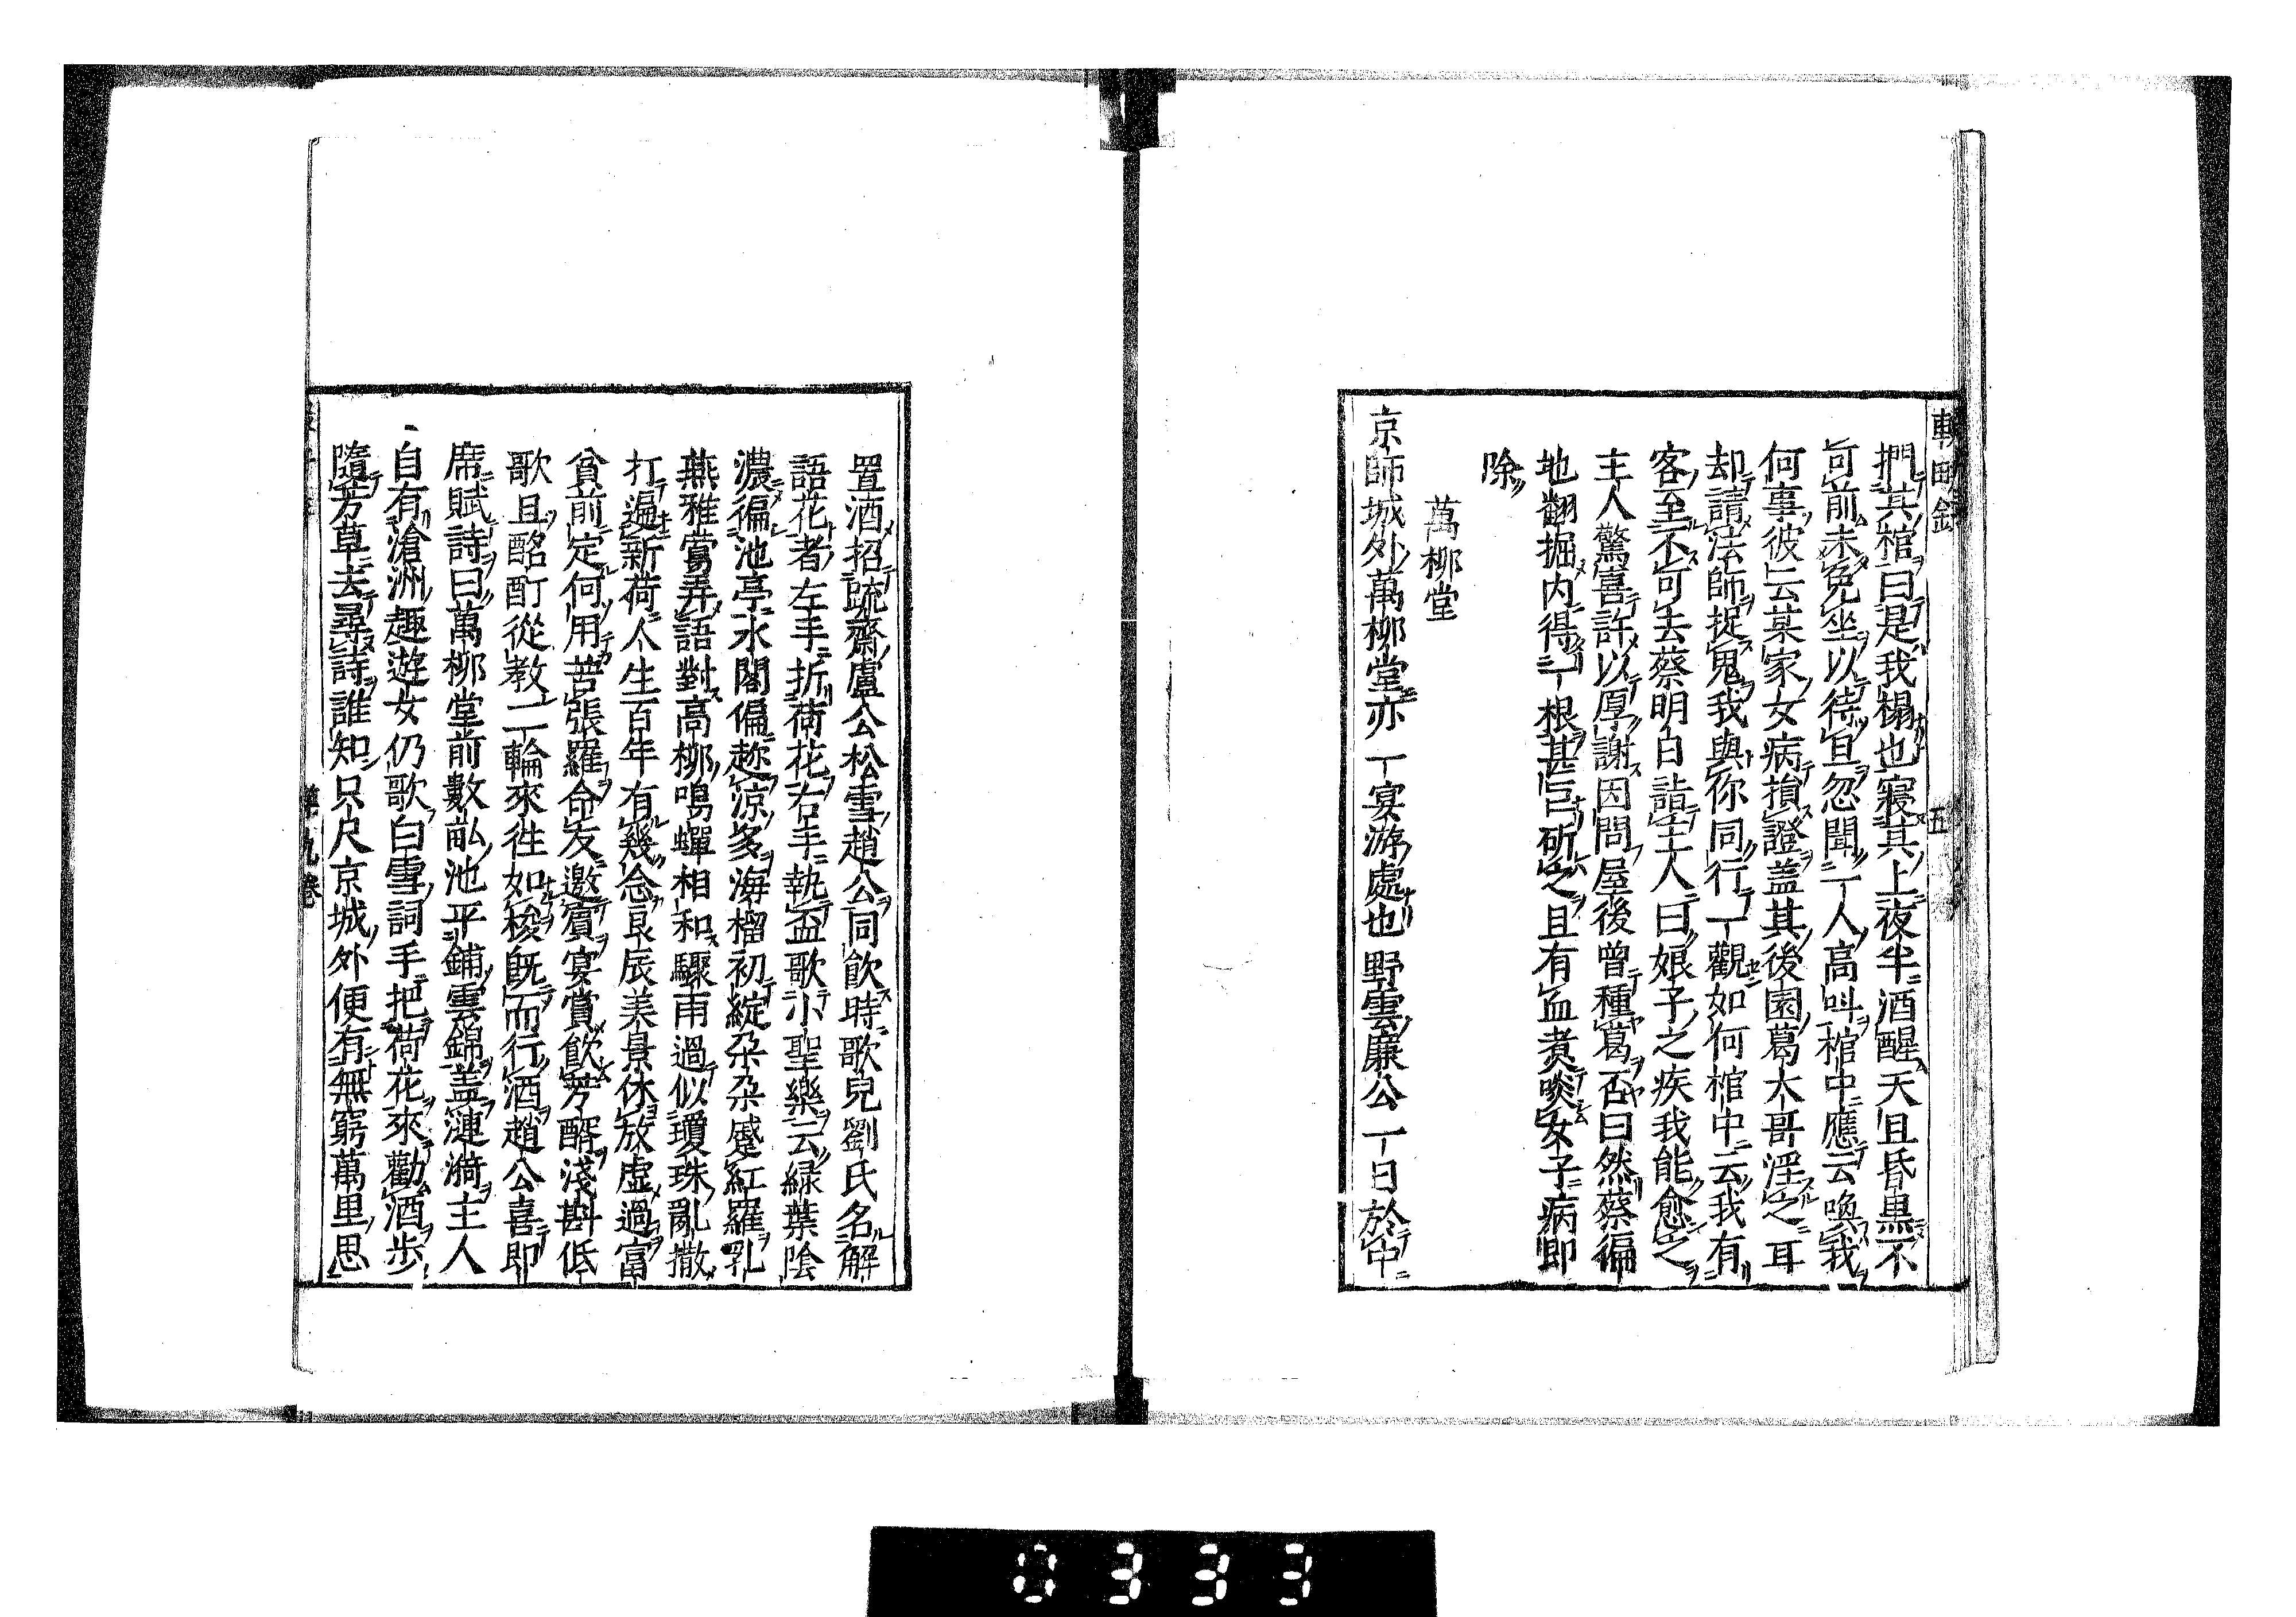 輟田録
五
捫其棺曰是我榻也寢其上夜半酒醒天且昏黒不
可前未免坐以待旦忽聞一人高叫棺中應云喚我
何事彼云某家女病損證盖其後園葛大哥淫之耳
却請法師捉鬼我與你同行一觀如何棺中云我有
客至不可去蔡明白詣主人曰娘子之疾我能愈之
主人驚喜許以厚謝因問屋後曾種葛否曰然蔡徧
地翻掘内得一根甚巨斫之且有血煮啖女子病即
除
萬柳堂
京師城外萬柳堂亦一宴游處也野雲廉公一日於中
置酒招疏齋盧公松雪趙公同飲時歌兒劉氏名解
語花者左手折荷花右手執盃歌小聖樂云緑葉陰
濃徧池亭水閣偏趂涼多海榴初綻朶朶蹙紅羅乳
燕雅鶯弄語對高柳鳴蟬相和驟雨過似瓊珠亂撒
打遍新荷人生百年有幾念良辰美景休放虚過富
貧前定何用苦張羅命友邀賓宴賞飲芳醑淺斟低
歌且酩酊從教二輪來徃如梭旣而行酒趙公喜即
席賦詩曰萬柳堂前數畝池平鋪雲錦盖漣漪主人
自有滄洲趣遊女仍歌白雪詞手把荷花來勸酒歩
隨芳草去尋詩誰知只尺京城外便有無窮萬里思
九巻
0333